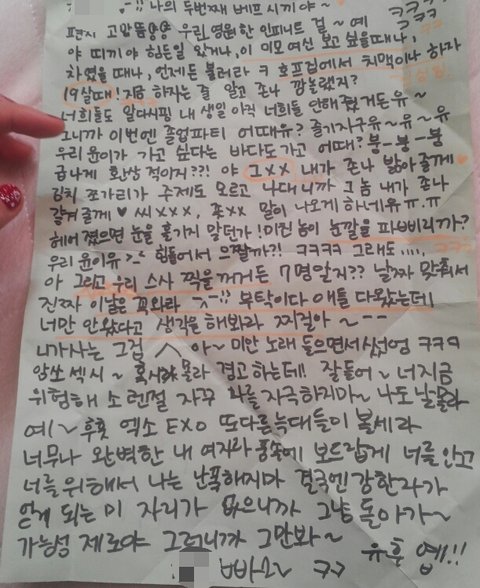 ~!! 나의 두번째 베프 시끼야~
편지 고맙뜸 우린 영원한 인피니트 걸~예 ㅋㅋㅋ
야 띠끼야 힘든일 있거나, 이 이모 여신 보고싶을때나,
차였을때나, 언제든 불러라 ㅋ 호프집에서 치맥이나 하자
19살때! 지금 하자는줄 알고 존나 깜놀랬지?
너희들도 알다시핌 내 생일 아직 너희들 안해줬거든유~
그니까 이번엔 졸업파티 어때유? 즐기자구유~유~유
우리 윤이가 가고 싶다는 바다도가고 어때? 붕-붕-붕
급나게 환상적이지??! 야 그xx 내가 존나 밟아줄게
김치 쪼가리가 주제도 모르고 나대니까 그놈 내가 존나
갈겨줄게 ♥ 씨xxx, 존xx 말이 나오게 하네유ㅠ.ㅠ
헤어졌으면 눈을 흘기지 말던가! 미친놈이 눈깔을 파삐리까?
우리 윤이유 >.< 힘들어서 으쩔까?! ㅋㅋㅋㅋ 그래도....,
아 그리고 우리 스사 찍을꺼거든 7명알지?? 날짜 맞춰서
진짜 이날은 꼭와라 ㅡㅡ!! 부탁이다 애들 다왔는데
너만 안왔다고 생각을 해봐라 찌걸아~--
니가사는 그집 ㅅ 아~미안 노래 들으면서 ㅋㅋㅋ
앙쏘 섹시~ 혹시나 몰라 경고하는데!! 잘들어~ 너지금
위험해 소렌절 자꾸 나를 자극하지마~ 나도 날몰라
예~ 후훗 엑소 EXO 또다른늑대들이 볼세라
너무나 완벽한 내 여자라 품속에 보드랍게 너를 안고
너를 위해서 나는 난폭해지마 결국엔 강한자가
얻게 되는 미 자리가 없으니까 그냥 돌아가~
가능성 제로야 그러니까 그만봐~ 유후 옙!!
빠요~ ㅋㅋ